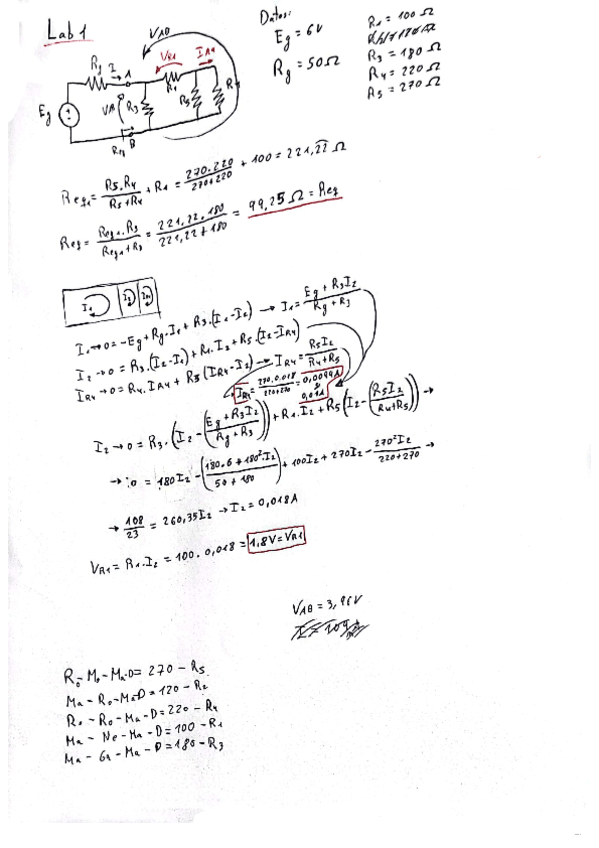 Lab 1
VAB
Datos:
Eg = 6V
Rg = 50Ω
R1 = 100 Ω
R3 = 180 Ω
R4 = 220 Ω
R5 = 270 Ω
Rg I A VR1 IR4
R1
Eg VAB R3 R5 R4
B
Req
Req1 = R5.R4/(R5+R4) + R1 = 270.220/(270+220) + 100 = 221,22 Ω
Req = Req1.R3/(Req1+R3) = 221,22.180/(221,22+180) = 99,25 Ω = Req
I1 I2 IR4
I1→0=-Eg+Rg.I1+R3.(I1-I2) → I1 = (Eg+R3I2)/(Rg+R3)
I2→0=R3.(I2-I1)+R1.I2+R5.(I2-IR4)
IR4→0=R4.IR4+R5(IR4-I2) → IR4 = R5I2/(R4+R5)
IR4 = 270.0.018/(220+270) = 0,0099A
0,01A
I2→0=R3.(I2-((Eg+R3I2)/(Rg+R3)))+R1.I2+R5(I2-(R5I2/(R4+R5))) →
→ 0 = 180I2-((180.6+180²I2)/(50+180))+100I2+270I2-270²I2/(220+270) →
→ 108/23 = 260,35I2 → I2 = 0,018A
VR1 = R1.I2 = 100.0,018 = 1,8V = VR1
VAB = 3,96V
Ro-Mo-Ma-D = 270 - R5
Ma-Ro-Ma-D = 120 - R2
Ro-Ro-Ma-D = 220 - R4
Ma-Ne-Ma-D = 100 - R1
Ma-Ga-Ma-D = 180 - R3